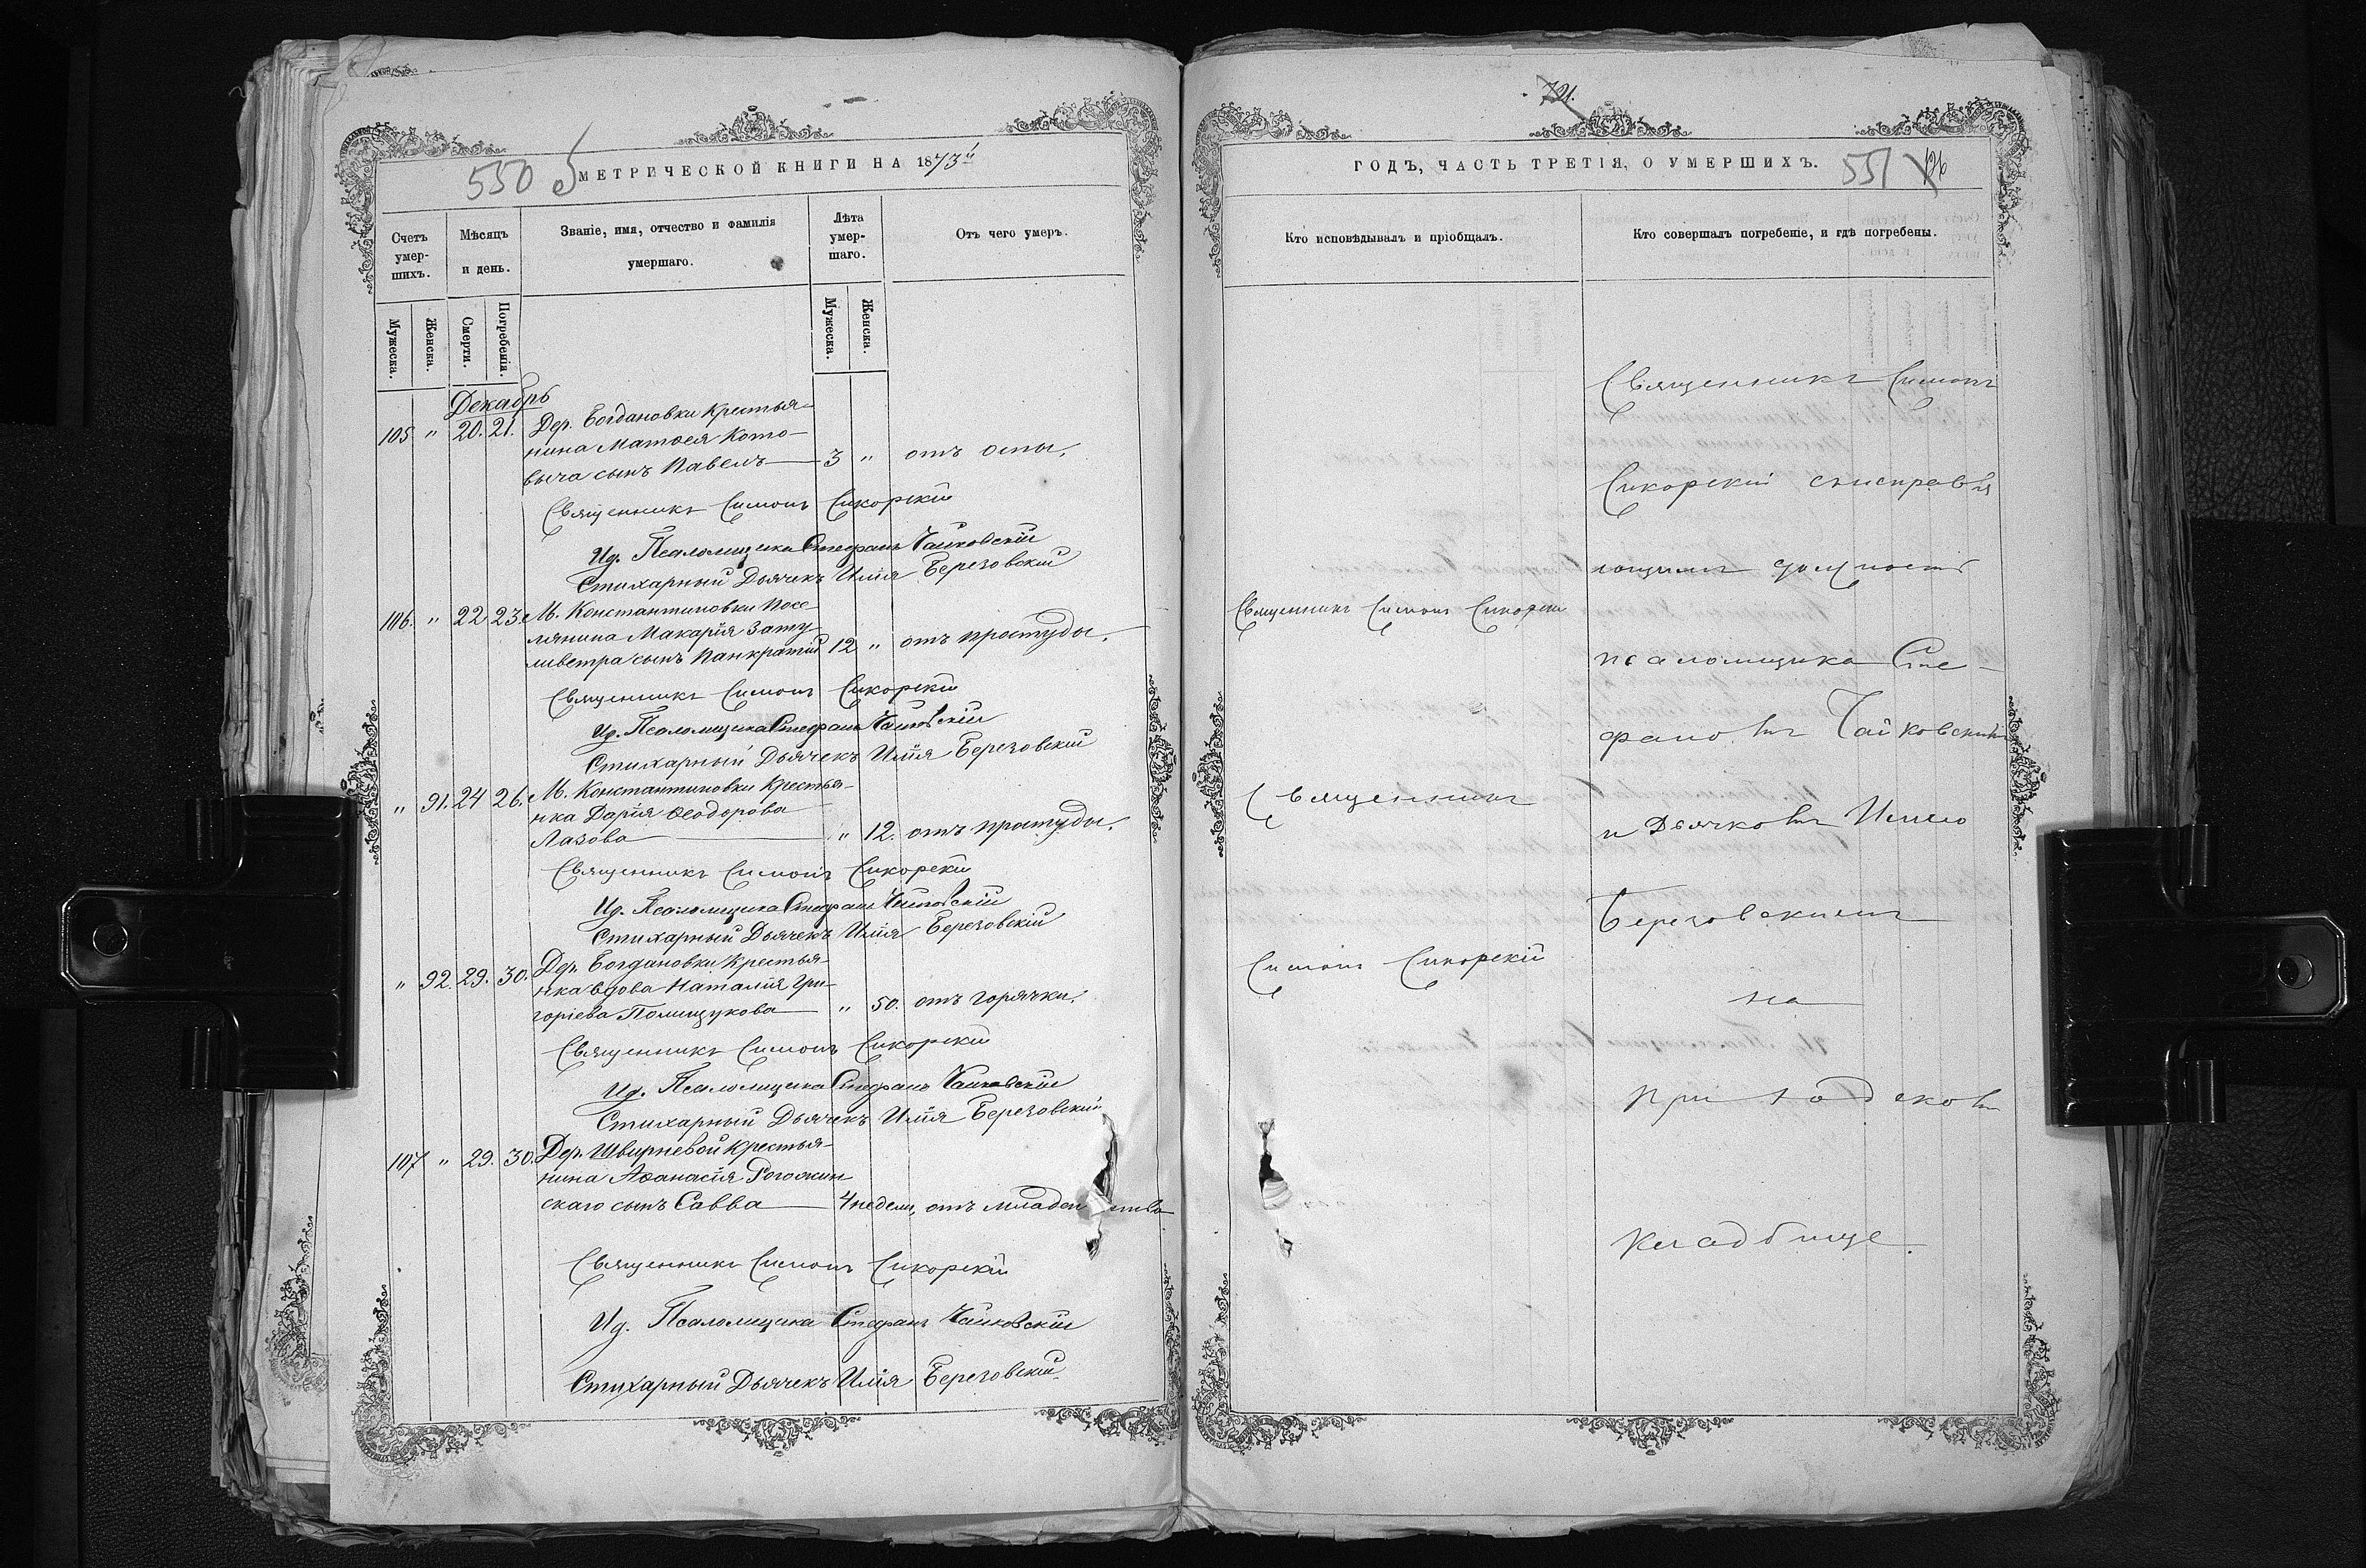 550
МЕТРИЧЕСКОЙ КНИГИ НА 1873й
Счетъ умер-шихъ.
Мѣсяцъ и день.
Званіе, имя, отчество и фамилія умершаго.
Лѣта умер-шаго.
Отъ чего умеръ.
Мужеска. Женска. Смерти. Погребенія. Мужеска. Женска.
Декабрь
105 " 20. 21. Дер. Богдановки Крестья-
нина Матѳея Кото-
выча сынъ Павелъ 3 " отъ оспы.
Священникъ Симонъ Сикорскій
Ид. Псаломщика Стефанъ Чайковскій
Стихарный Дьячекъ Илія Березовскій
106. " 22 23. М. Константиновки Посе-
лянина Макарія Зату
ливетра сынъ Панкратій 12 " отъ простуды.
Священникъ Симонъ Сикорскій
Ид. Псаломщика Стефанъ Чайковскій
Стихарный Дьячекъ Илія Березовскій
" 91. 24 26. М. Константиновки Крестья-
нка Дарія Ѳеодорова
Лазова " 12. отъ простуды.
Священникъ Симонъ Сикорскій
Ид. Псаломщика Стефанъ Чайковскій
Стихарный Дьячекъ Илія Березовскій
" 92. 29. 30. Дер. Богдановки Крестья-
нка вдова Наталія Гри-
горіева Полищукова " 50. отъ горячки.
Священникъ Симонъ Сикорскій
Ид. Псаломщика Стефанъ Чайковскій
Стихарный Дьячекъ Илія Березовскій
107 " 29. 30. Дер. Швирневой Крестья-
нина Аѳанасія Рогожин
скаго сынъ Савва 4 недели, отъ младен ства
Священникъ Симонъ Сикорскій
Ид. Псаломщика Стефанъ Чайковскій
Стихарный Дьячекъ Илія Березовскій
721.
ГОДЪ, ЧАСТЬ ТРЕТІЯ, О УМЕРШИХЪ.
551
Кто исповѣдывалъ и пріобщалъ.
Кто совершалъ погребеніе, и гдѣ погребены.
Священникъ Симонъ Сикорскій
Священникъ
Симонъ Сикорскій
Священникъ Симонъ
Сикорскій съ исправля
ющимъ должность
псаломщика Сте-
фаномъ Чайковскимъ
и Дьячкомъ Иліею
Березовскимъ
на
приходскомъ
кладбище.